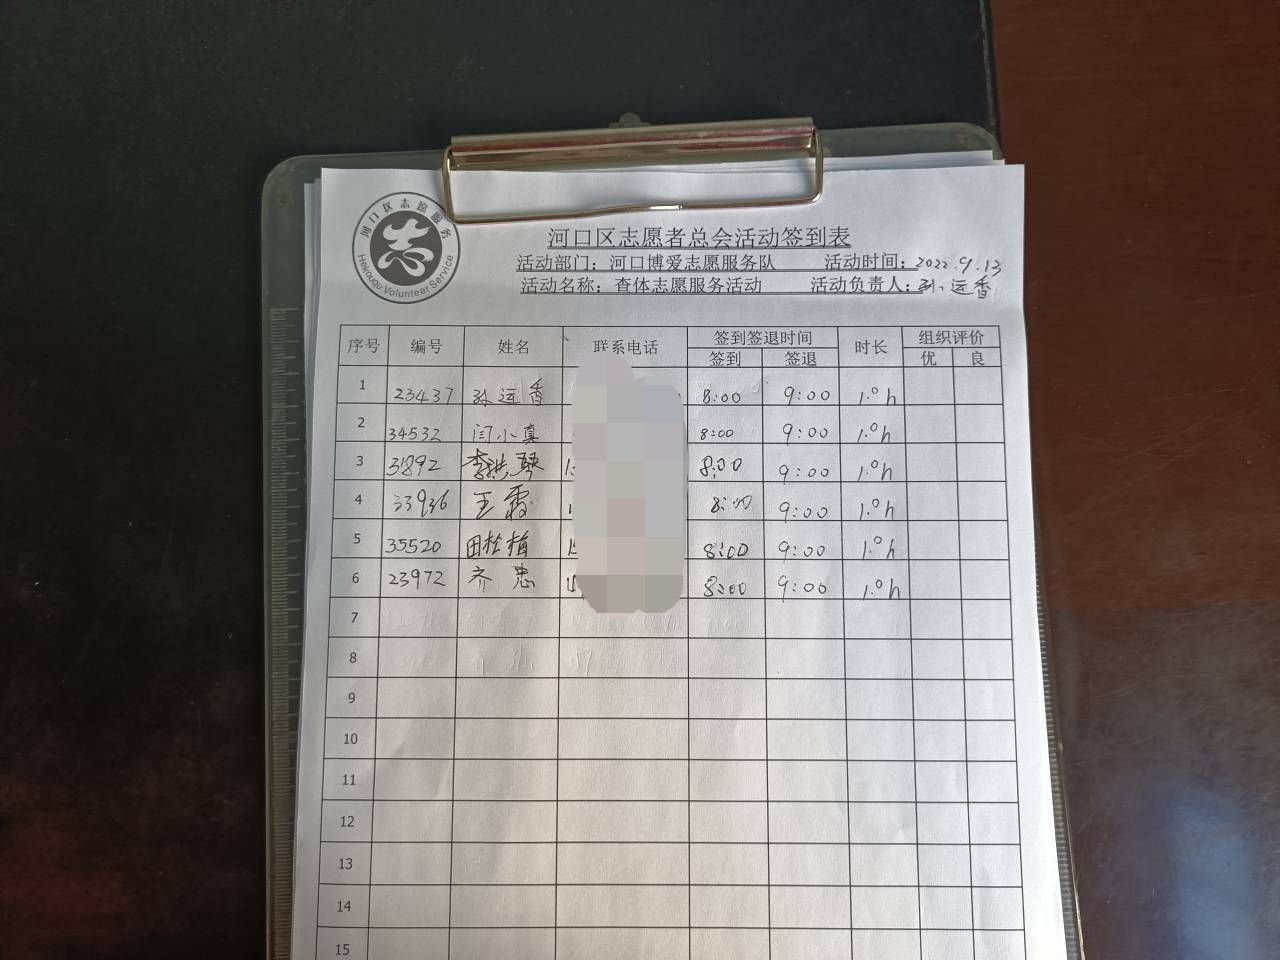 河口区志愿服务
Hekouqu Volunteer Service
河口区志愿者总会活动签到表
活动部门：河口博爱志愿服务队 活动时间：2022.9.13
活动名称：查体志愿服务活动 活动负责人：孙运香
序号 编号 姓名 联系电话 签到签退时间 时长 组织评价
签到 签退 优 良
1 23437 孙运香 8:00 9:00 1.0h
2 34532 闫小真 8:00 9:00 1.0h
3 31892 李洪琴 8:00 9:00 1.0h
4 33936 王霞 8:00 9:00 1.0h
5 35520 田桂梅 15 8:00 9:00 1.0h
6 23972 齐忠 8:00 9:00 1.0h
7
8
9
10
11
12
13
14
15